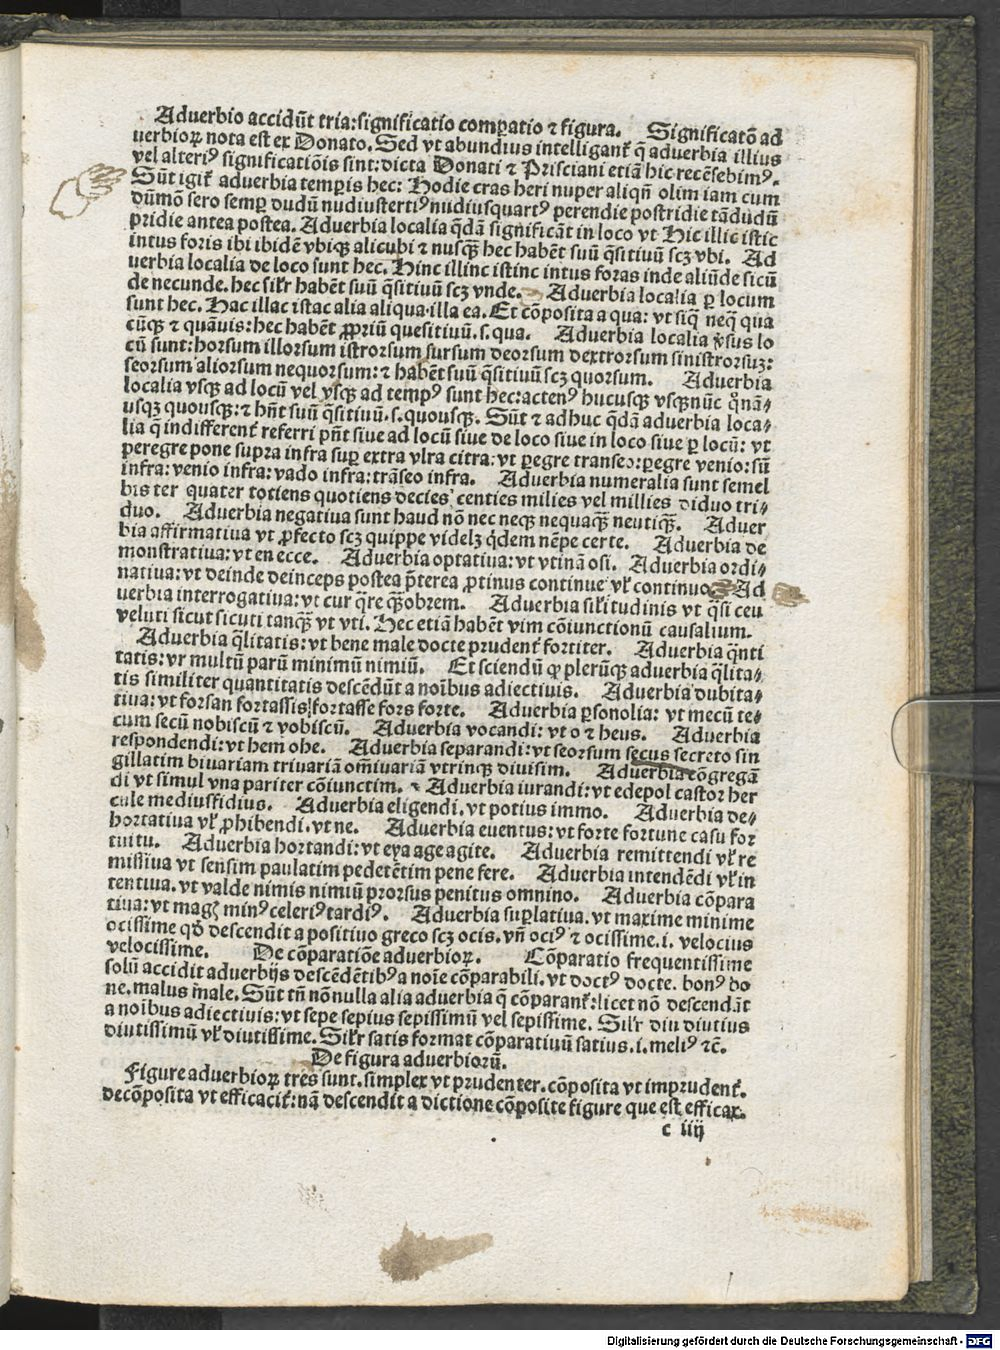 Aduerbio accidūt tria: significatio comꝑatio ⁊ figura. Significatō ad
uerbioꝝ nota est ex Donato. Sed vt abundius intelligant᷑ q̄ aduerbia illius
vel alteriꝰ significatiōis sint: dicta Donati ⁊ Prisciani etiā hic recēsebimꝰ.
Sūt igit᷑ aduerbia temꝑis hec: Hodie cras heri nuper aliqn̄ olim iam cum
dūmō sero semꝑ dudū nudiustertiꝰ nudiusquartꝰ perendie postridie tādudū
pridie antea postea. Aduerbia localia q̄dā significāt in loco vt Hic illic istic
intus foris ibi ibidē vbiqꝫ alicubi ⁊ nusqꝫ̄ hec habēt suū q̄sitiuū scꝫ vbi. Ad
uerbia localia de loco sunt hec. Hinc illinc istinc intus foras inde aliūde sicū
de necunde. hec silr̄ habēt suū q̄sitiuū scꝫ vnde. Aduerbia localia ꝑ locum
sunt hec. Hac illac istac alia aliqua. illa ea. Et cōposita a qua: vt siq̄ neq̄ qua
cūqꝫ ⁊ quāuis: hec habēt ꝓpriū quesitiuū. s. qua. Aduerbia localia v̓sus lo
cū sunt: horsum illorsum istrorsum sursum deorsum dextrorsum sinistrorsuꝫ:
seorsum aliorsum nequorsum: ⁊ habēt suū q̄sitiuū scꝫ quorsum. Aduerbia
localia vsqꝫ ad locū vel vsqꝫ ad tempꝰ sunt hec: actenꝰ hucusqꝫ vsqꝫnūc qͦnā⸗
usqꝫ quousqꝫ: ⁊ hn̄t suū q̄sitiuū. s. quousqꝫ. Sūt ⁊ adhuc q̄dā aduerbia loca⸗
lia q̄ indifferent᷑ referri pn̄t siue ad locū siue de loco siue in loco siue ꝑ locū: vt
peregre pone supra infra suꝑ extra vlra citra: vt ꝑegre transeo: ꝑegre venio: sū
infra: venio infra: vado infra: trāseo infra. Aduerbia numeralia sunt semel
bis ter quater totiens quotiens decies centies milies vel millies diduo tri⸗
duo. Aduerbia negatiua sunt haud nō nec neqꝫ nequaqꝫ̄ neutiqꝫ. Aduer
bia affirmatiua vt ꝓfecto scꝫ quippe videlꝫ q̇dem nēpe certe. Aduerbia de
monstratiua: vt en ecce. Aduerbia optatiua: vt vtinā osi. Aduerbia ordi⸗
natiua: vt deinde deinceps postea p̄terea ꝓtinus continue vl̓ continuo Ad
uerbia interrogatiua: vt cur q̄re qꝫ̄obrem. Aduerbia sil̓itudinis vt q̄si ceu
veluti sicut sicuti tanqꝫ̄ vt vti. Hec etiā habēt vim cōiunctionū causalium.
Aduerbia q̄litatis: vt bene male docte prudent᷑ fortiter. Aduerbia q̄nti
tatis: vr multū parū minimū nimiū. Et sciendū ꝙ plerūqꝫ aduerbia q̄lita⸗
tis similiter quantitatis descēdūt a noībus adiectiuis. Aduerbia dubita⸗
tiua: vt forsan fortassis fortasse fors forte. Aduerbia ꝑsonolia: vt mecū te⸗
cum secū nobiscū ⁊ vobiscū. Aduerbia vocandi: vt o ⁊ heus. Aduerbia
respondendi: vt hem ohe. Aduerbia separandi: vt seorsum secus secreto sin
gillatim biuariam triuariā om̄iuariā vtrinqꝫ diuisim. Aduerbia cōgregā
di vt simul vna pariter cōiunctim. Aduerbia iurandi: vt edepol castor her
cule mediusfidius. Aduerbia eligendi. vt potius immo. Aduerbia de⸗
hortatiua vl̓ ꝓhibendi. vt ne. Aduerbia euentus: vt forte fortune casu for
tuitu. Aduerbia hortandi: vt eya age agite. Aduerbia remittendi vl̓ re
missiua vt sensim paulatim pedetētim pene fere. Aduerbia intendēdi vl̓ in
tentiua. vt valde nimis nimiū prorsus penitus omnino. Aduerbia cōpara
tiua: vt magꝭ minꝰ celeriꝰ tardiꝰ. Aduerbia suꝑlatiua. vt maxime minime
ocissime qđ descendit a positiuo greco scꝫ ocis. vn̄ ociꝰ ⁊ ocissime. i. velocius
velocissime. De cōparatiōe aduerbioꝝ. Cōparatio frequentissime
solū accidit aduerbijs descēdētibꝰ a noīe cōparabili. vt doctꝰ docte. bonꝰ bo
ne. malus male. Sūt tn̄ nōnulla alia aduerbia q̄ cōparant᷑: licet nō descendāt
a noībus adiectiuis: vt sepe sepius sepissimū vel sepissime. Silr̄ diu diutius
diutissimū vl̓ diutissime. Silr̄ satis format cōparatiuū satius. i. meliꝰ ⁊c̄.
De figura aduerbiorū.
Figure aduerbioꝝ tres sunt. simplex vt prudenter. cōposita vt imprudent᷑.
decōposita vt efficacit᷑: nā descendit a dictione cōposite figure que est efficax.
c iiij
Digitalisierung gefördert durch die Deutsche Forschungsgemeinschaft - DFG